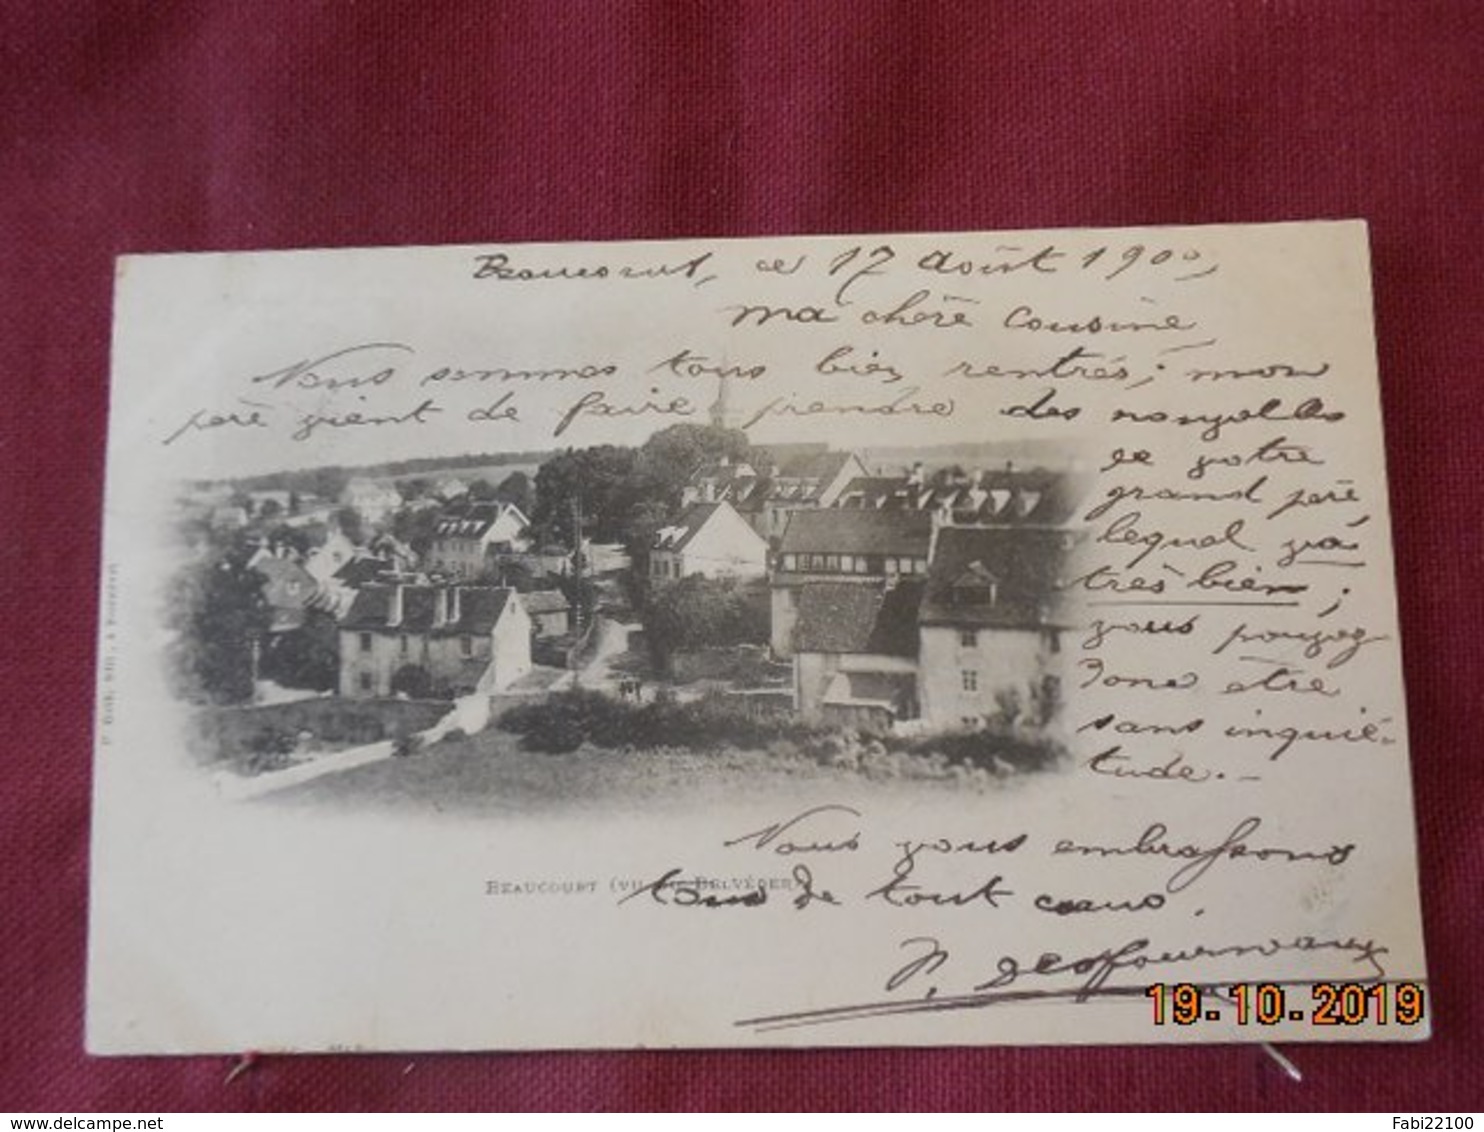 Beaucourt, ce 17 Août 1900,
Ma chère Cousine,
Nous sommes tous bien rentrés; mon
père vient de faire prendre des nouvelles
de votre
grand père
lequel va
très bien;
vous pouvez
donc être
sans inquié-
tude. -
Nous vous embrassons
tous de tout cœur.
BEAUCOURT (VU DU BELVÉDER)
19.10.2019
delcampe.net
Fabi22100